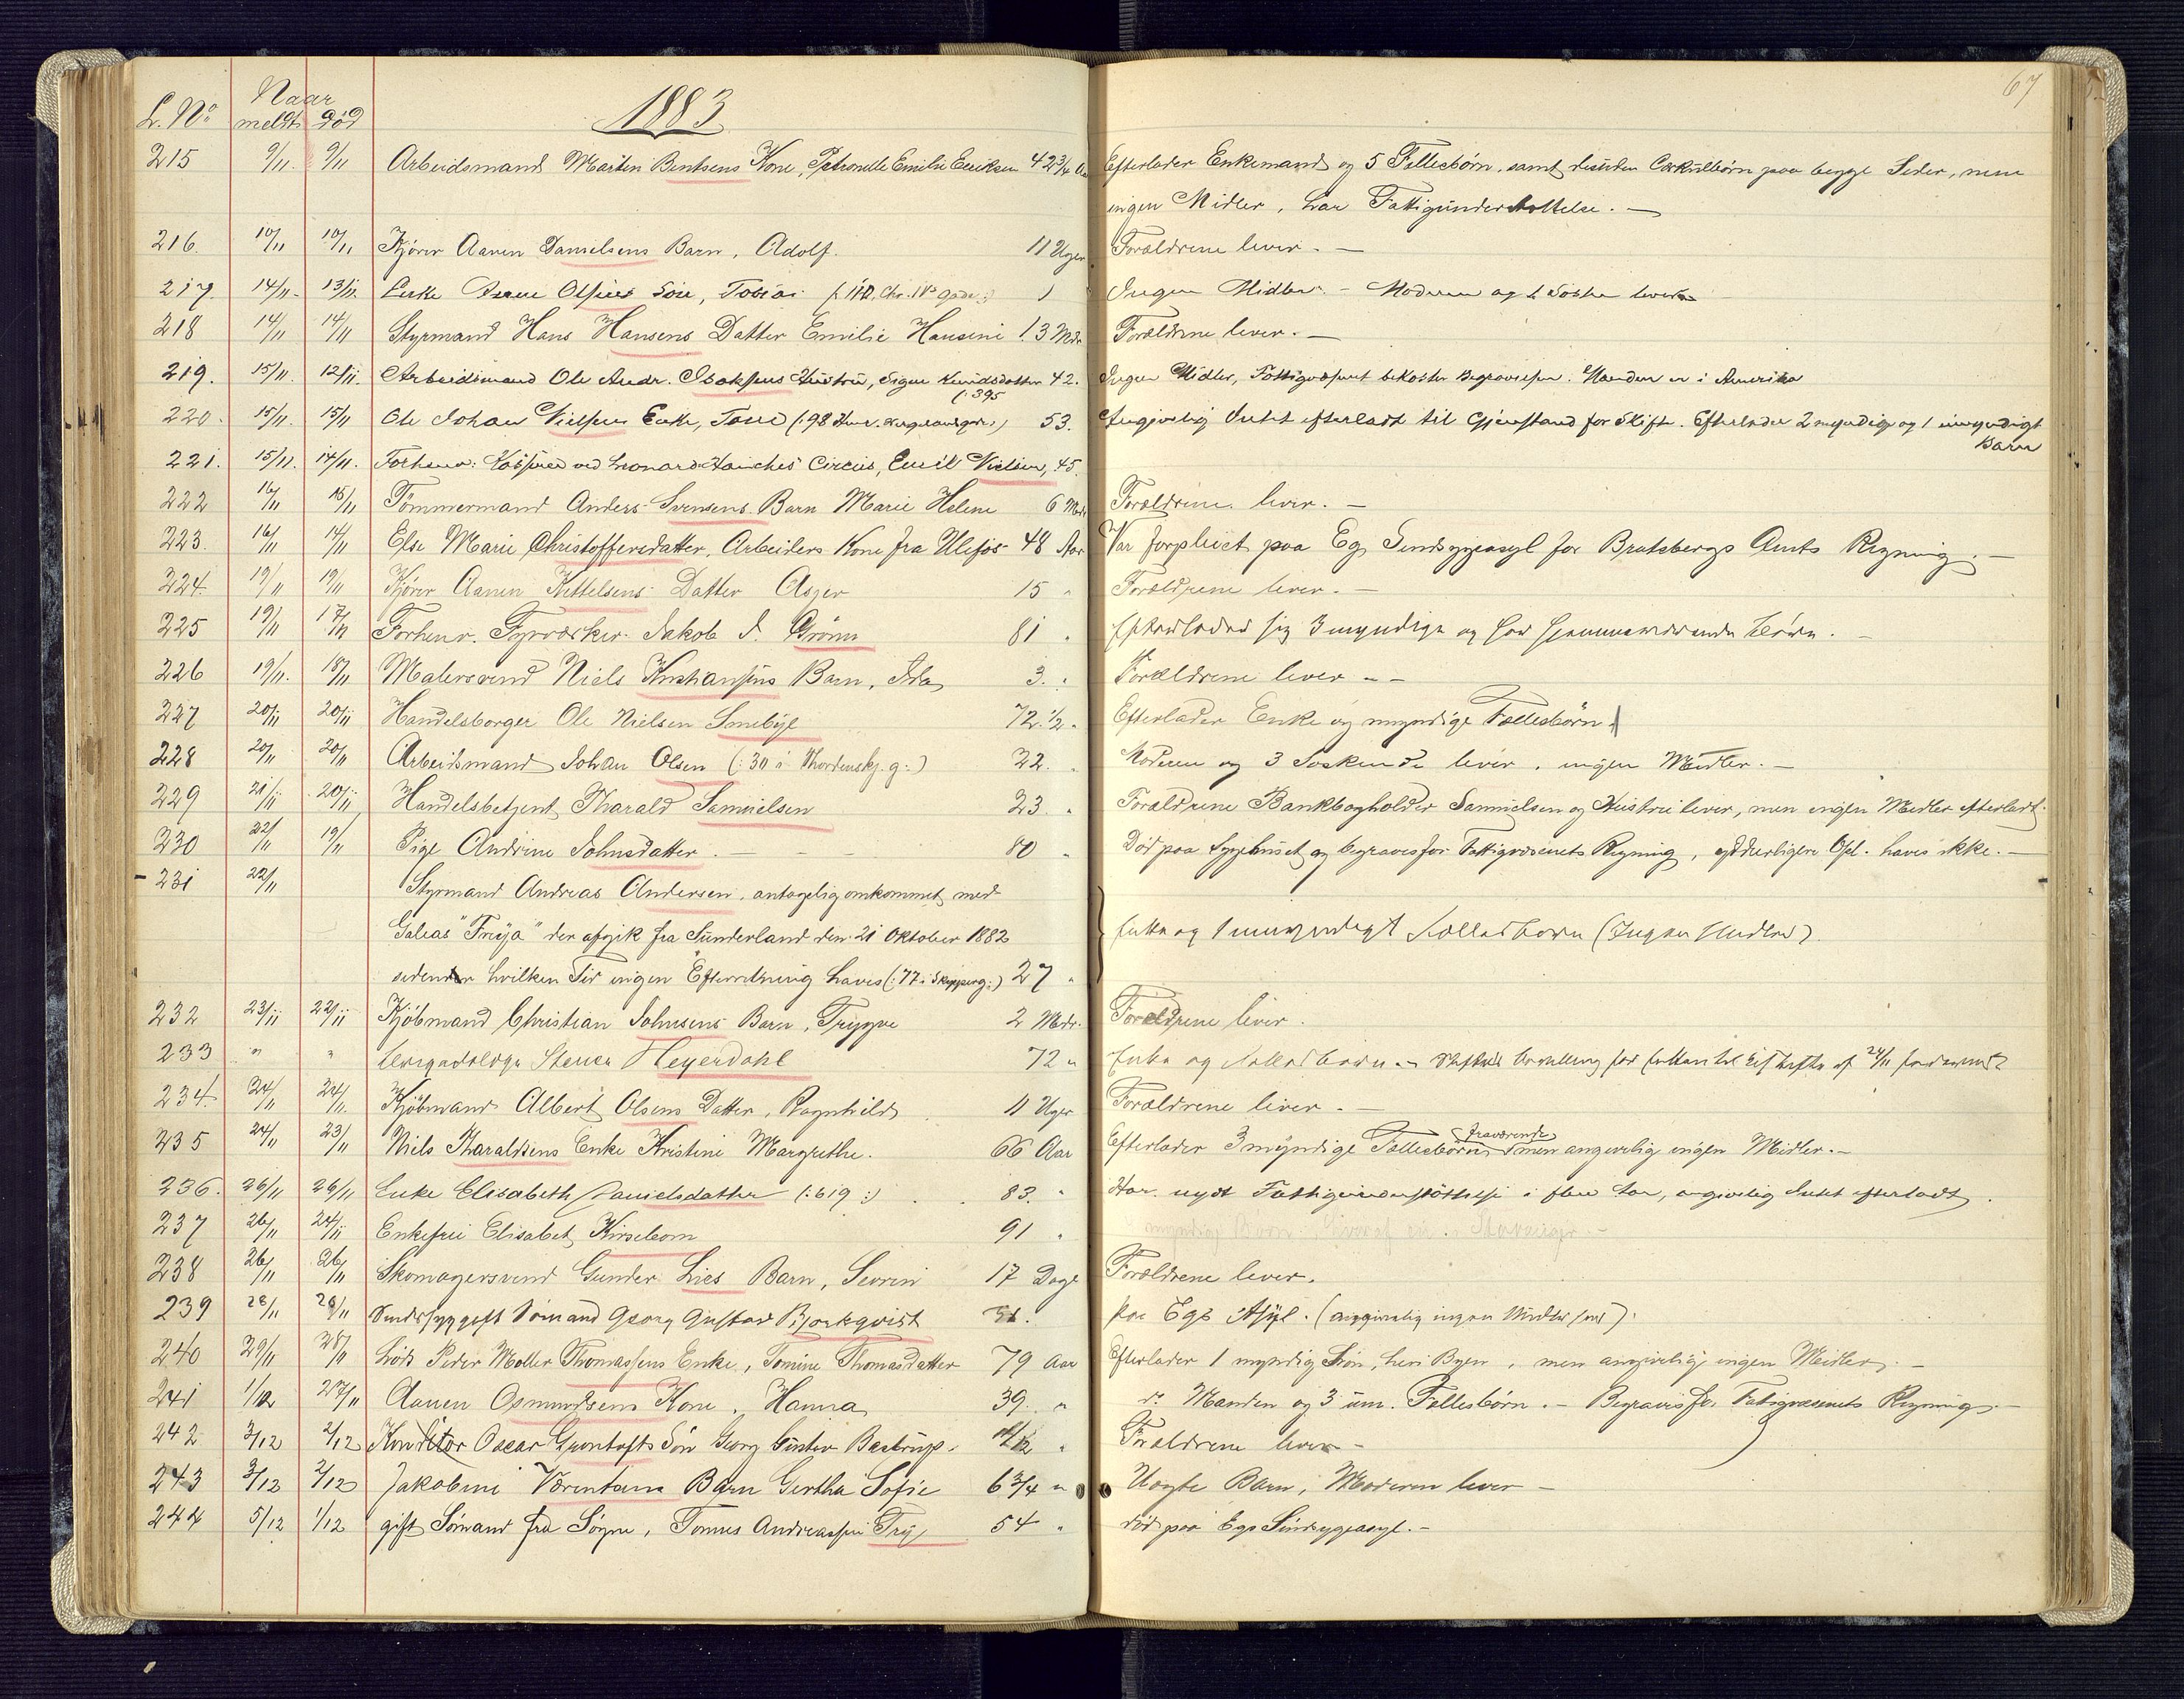 67
L. No Naar meldt død 1883
215 9/11. 9/11 Arbeidsmand Martin Bentsens Kone, Petronelle Emilie Eeriksen 42 3/4 Aa Efterlader Enkemand og 5 Fellesbörn, samt desuden Særkulbörn paa begge Sider, men
ingen Midler, har Fattigunderstøttelse. —
216. 10/11 10/11 Kjører Aanen Danielsens Barn, Adolf. 11 Uger Forældrene lever. —
217. 14/11 - 13/11. Enke Olsens Søn, Tobias Ingen Midler. - Moderen og Søster lever
218 14/11 14/11 Styrmand Hans Hansens Datter Emilie Hansine 1.3 Mdr Forældrene lever. —
219. 15/11. 12/11. Arbeidsmand Ole Andr. Isaksens Hustru, Signe Knudsdatter 42. Ingen Midler, Fattigvæsenet bekoster Begravelsen. Manden er i Amerika
(: 395
220. 15/11 15/11 Ole Johan Nielsens Enke, Tone (: 98 53. Angivelig Intet efterladt til Gjenstand for Skifte. Efterlader 2 myndige og 1 umyndigt
Barn
221. 15/11. 14/11. Forhenv: ved Leonard Circus, Emil Nielsen, 45.
222 16/11 15/11 Tömmermand Anders Svensens Barn Marie Helene 6 Mdr Forældrene lever. —
223. 16/11 14/11 Else Marie Christoffersdatter, Arbeiders Kone fra Ulefos 48 Aar Var forpleiet paa Eg Sindsygeasyl for Bratsbergs Amts Regning. —
224. 19/11 19/11 Kjører Aanen Kittelsens Datter Asger 15 " Forældrene lever. —
225 19/11 17/11 Forhenv. Fyrvæsker Jakob J. Grönn 81 " Efterlader sig 3 myndige og her hjemmeværende Börn. —
226 19/11. 18/11 Malersvend Niels Kristiansens Barn, Ida 3. " Forældrene lever - -
227 20/11 20/11 Handelsborger Ole Nielsen Smebye 72. 1/2 " Efterlader Enke og myndige Fællesbörn.
228 20/11 20/11 Arbeidsmand Johan Olsen (: 30 i Thordenskj. g :) 22. " Moderen og 3 Søskende lever, ingen Midler. —
229 21/11 20/11 Handelsbetjent Tharald Samuelsen 23 " Forældrene Bankbogholder Samuelsen og Hustru lever, men ingen Midler efterladt.
230 22/11 19/11 Pige Andrine Johnsdatter. — — 80 " Död paa Sygehuset og begraves for Fattigvæsenets Regning, yderligere Opl. haves ikke. —
- 231 22/11 Styrmand Andreas Andersen, antagelig omkommet med
Galeas "Freya" der afgik fra Sunderland den 21 Oktober 1882 Enke og 1 umyndigt Fællesbarn (Ingen Midler).
siden hvilken Tid ingen Efterretning haves (: 77 i Skipperg :) 27 "
232 23/11 22/11 Kjöbmand Christian Johnsens Barn, Trygve 2 Mdr. Forældrene lever.
233 " " Steen Heyerdahl 72 " Enke og Fællesbörn. - Bevilling for Enken til af 24/11
234. 24/11 24/11. Kjöbmand Albert Olsens Datter, Ragnhild 11 Uger Forældrene lever. —
235 24/11 23/11 Niels Tharaldsens Enke Kristine Margrethe. 66 Aar Efterlader 3 myndige fraværende Fællesbörn men angivelig ingen Midler. —
236. 26/11 26/11 Enke Elisabeth Danielsdatter (: 619 :) 83. " Har nydt Fattigunderstöttelse i flere Aar, angivelig Intet efterladt.
237 26/11 24/11 Enkefru Elisabet Kirsebom 91 " myndige Börn hvoraf en i Stavanger. —
238 26/11 26/11 Skomagersvend Gunder Lies Barn, Severin 17 Dage Forældrene lever.
239 28/11 28/11 Sindssyg gift Sömand Georg Gustav Bjorkqvist paa Egs Asyl. (angivelig ingen Midler ).
240 29/11 28/11 Lods Peder Møller Thomassens Enke, Tomine Thomasdatter 79 Aar Efterlader 1 myndig Sön, her i Byen, men angivelig ingen Midler. —
241 1/12 27/11 Aanen Osmundsens Kone, Hanna 39 " do Manden og 3 um. Fellesbörn. — Begraves for Fattigvæsenets Regning. —
242 3/12 2/12 Konditor Oscar Grontofts Sön Georg Gustav Bastrup. Forældrene lever —
243 3/12 2/12 Jakobine Vorentsens Barn Gertha Sofie 6 3/4 " Uægte Barn, Moderen lever —
244 5/12 1/12 gift Sömand fra Sögne, Tomes Andreassen Try 54 " död paa Egs Sindsygeasyl. —